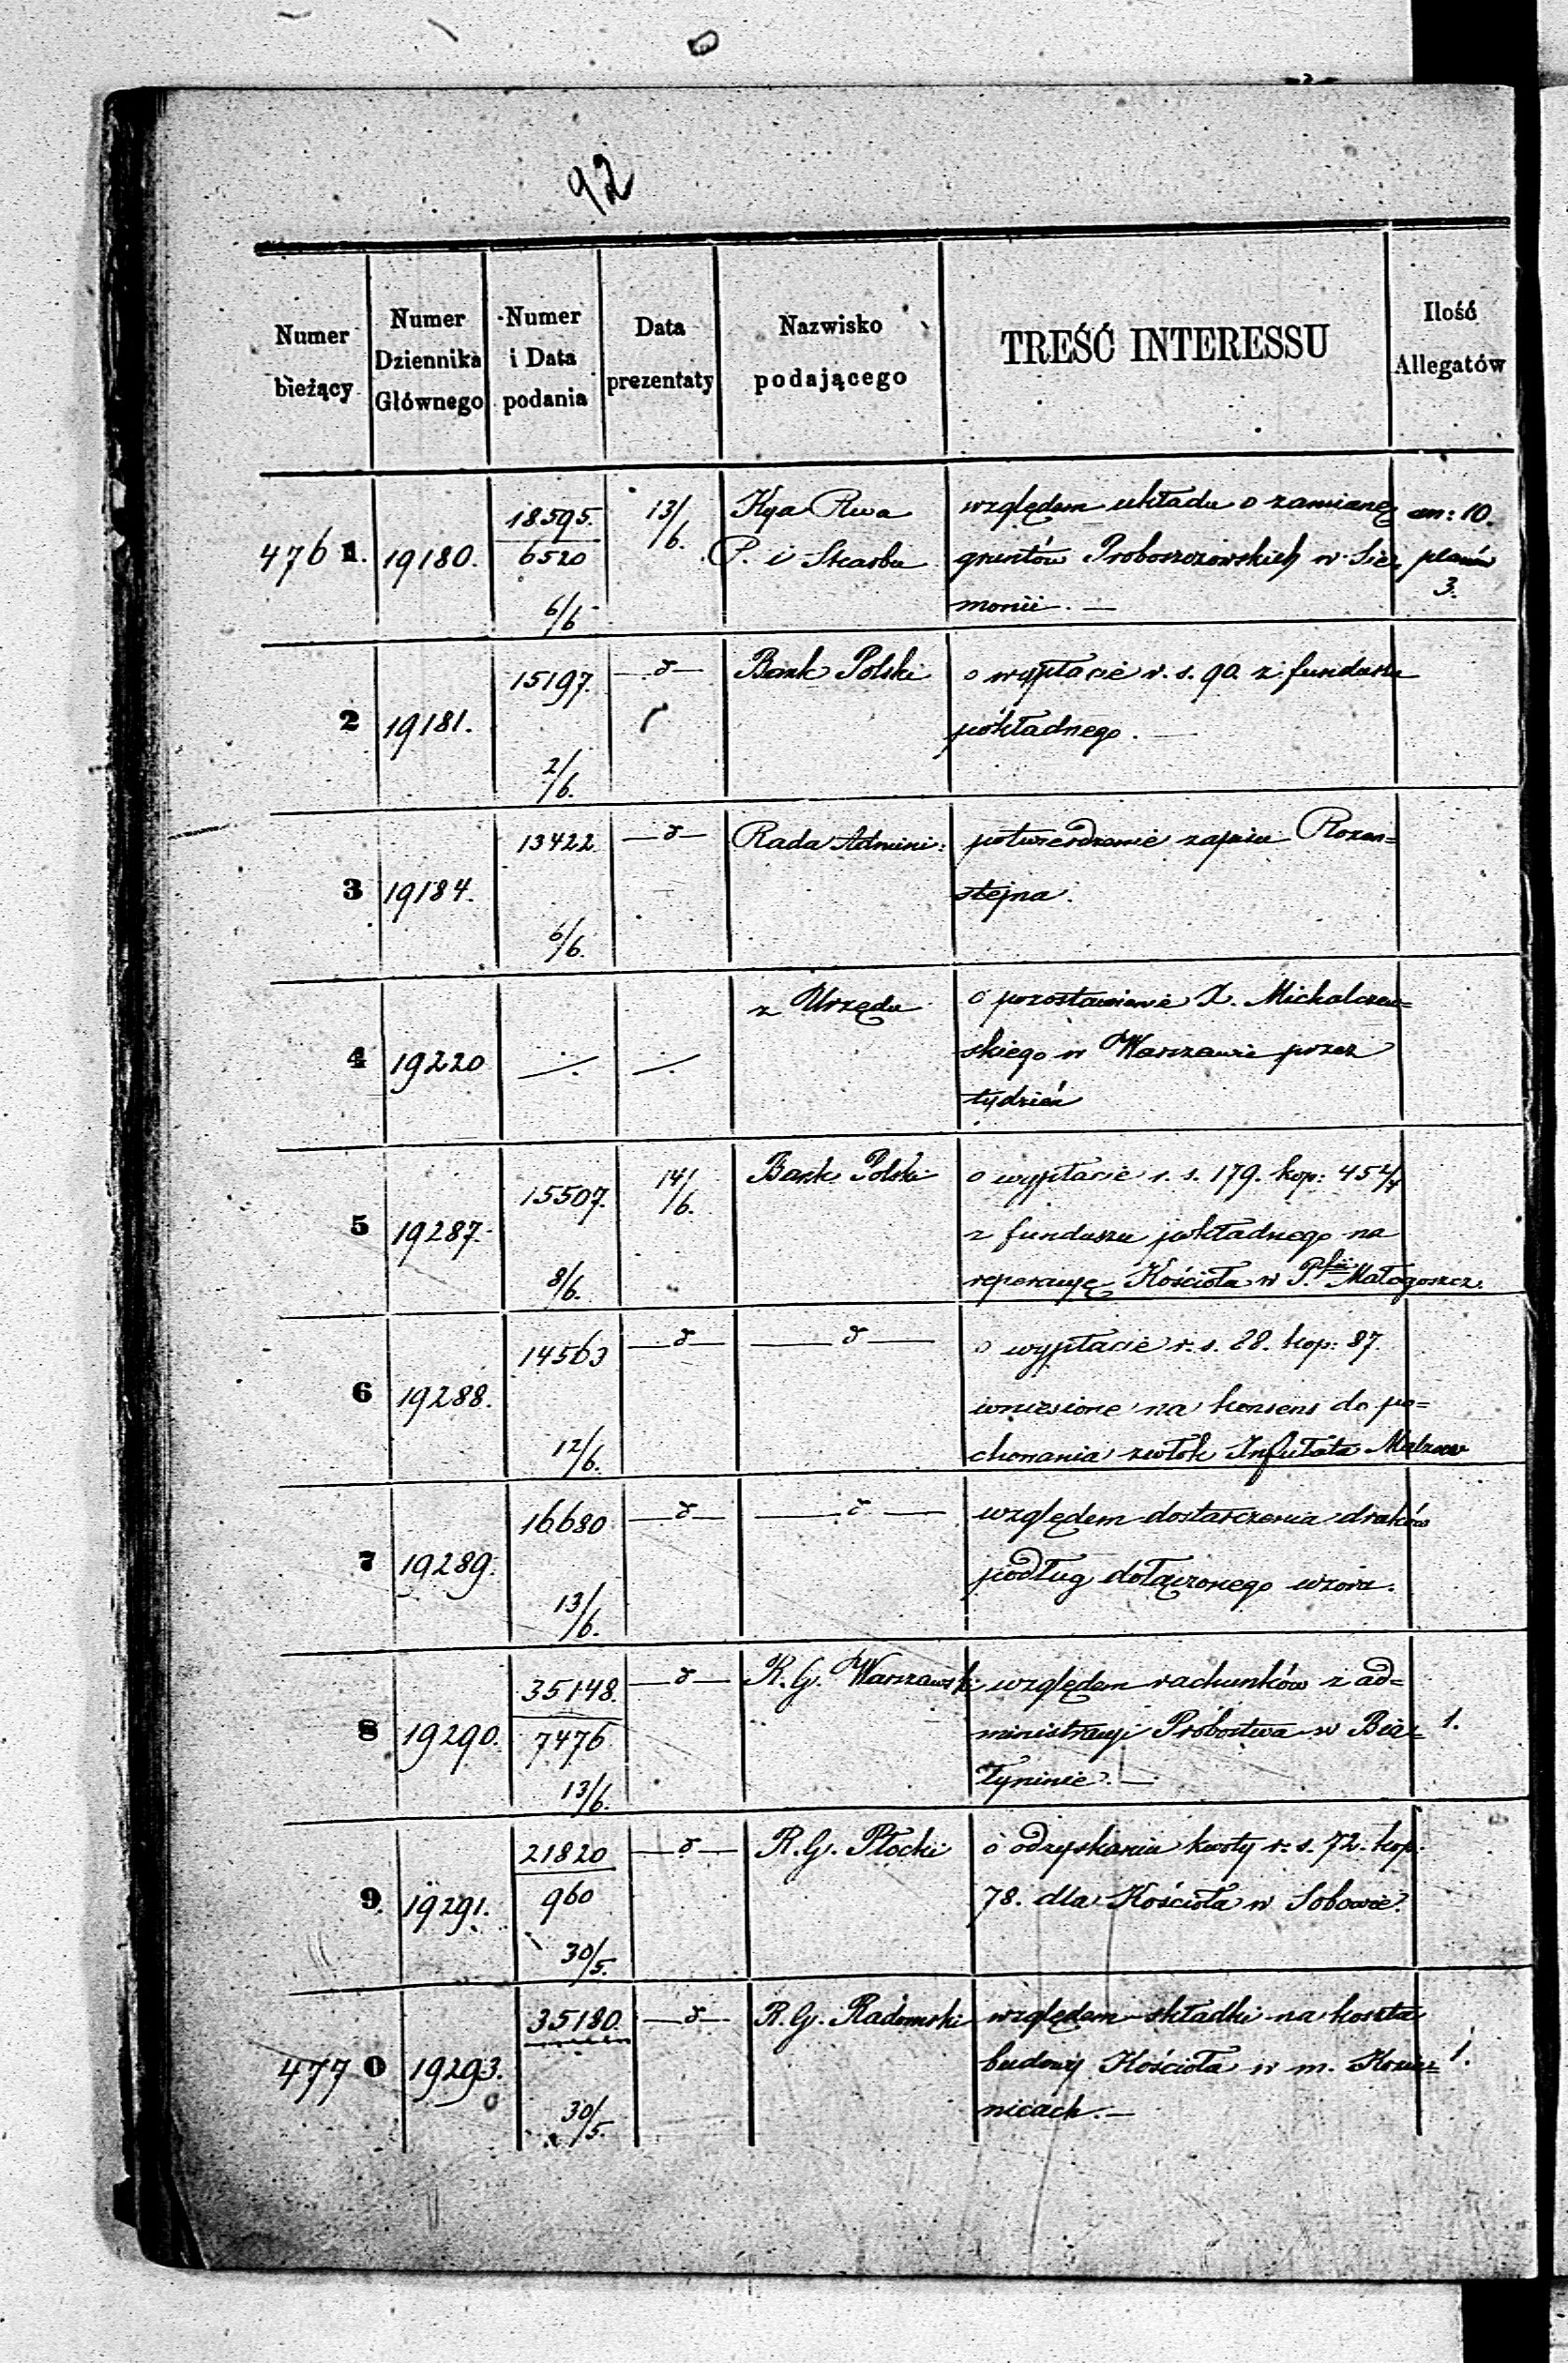 92
Numer bieżący
Numer Dziennika Głównego
Numer i Data podania
Data prezentaty
Nazwisko podającego
TREŚĆ INTERESSU
Ilość Allegatów
4761. 19180. 18595. 13/6. Kya Rwa względem układu o zamianę an: 10.
6520 P. i Skarbu gruntów Proboszczowskich w Sie= planów
6/6 monii. — 3.
2 19181. 15197. —d— Bank Polski o wypłacie r. s. 90. z funduszu
2/6. pokładnego. —
3 19184. 13422. —d— Rada Admini: potwierdzenie zapisu Rozen=
6/6. stejna.
4 19220 z Urzędu o pozostawienie X. Michalczew=
skiego w Warszawie przez
tydzień
5 19287. 15507. 14/6. Bank Polski o wypłacie r. s. 179. kop: 45
8/6. z funduszu pokładnego na
reperacyę Kościoła w P. Małogoszcz.
6 19288. 14563 —d— —d— o wypłacie r. s. 28. kop: 87.
12/6. wniesione na konsens do po=
chowania zwłok Infułata
7 19289. 16680 —d— —d— względem dostarczenia druków
13/6. podług dołączonego wzoru.
8 19290. 35148. —d— R. G. Warszawski względem rachunków z ad=
7476 ministracyi Probostwa w Bia= 1.
13/6. łyninie. —
9. 19291. 21820 —d— R. G. Płocki o odzyskaniu kwoty r. s. 72. kop.
960 78. dla Kościoła w Sobowie.
30/5.
4770 19293. 35180. —d— R. G. Radomski względem składki na koszta
30/5. budowy Kościoła w m. Kozie= 1.
nicach. —